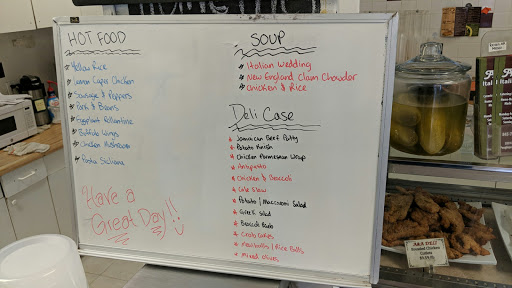 HOT FOOD
Yellow Rice
Lemon Caper Chicken
Sausage & Peppers
Pork & Beans
Eggplant Rollantine
Buffalo Wings
Chicken Mushroom
Pasta Siciliana
Have a
Great Day!!
SOUP
Italian Wedding
New England Clam Chowder
Chicken & Rice
Deli Case
Jamaican Beef Patty
Potato Knish
Chicken Parmesan Wrap
Antipasto
Chicken & Broccoli
Cole Slaw
Potato / Maccaroni Salad
Greek Salad
Broccoli Rabe
Crab Cakes
Meatballs / Rice Balls
Mixed olives
A&A DELI
Breaded Chicken
Cutlets